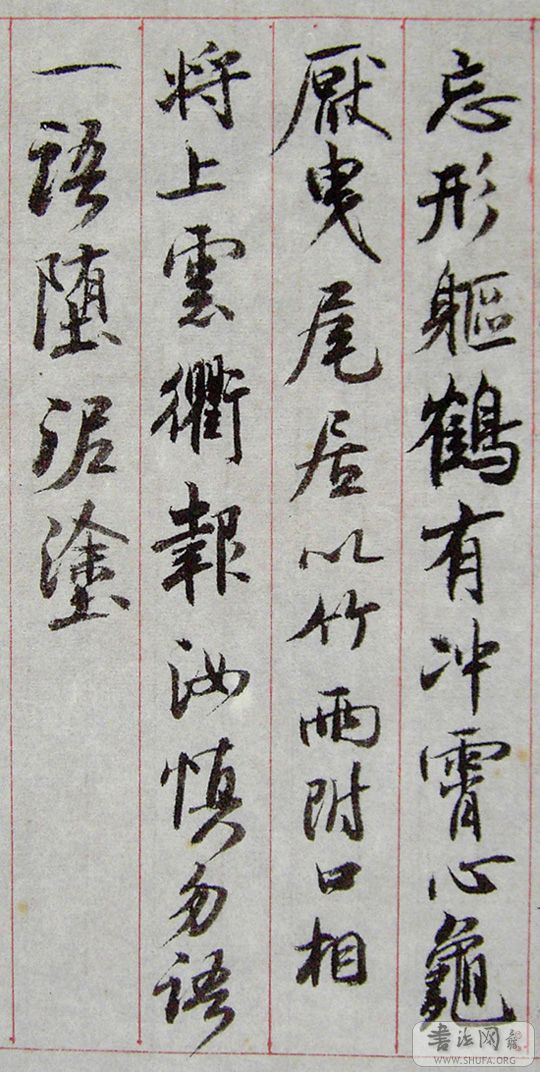 忘形軀鶴有冲霄心龜
厭曳尾居以竹兩附口相
將上雲衢報汝慎勿語
一語堕泥塗
書法网
WWW.SHUFA.ORG